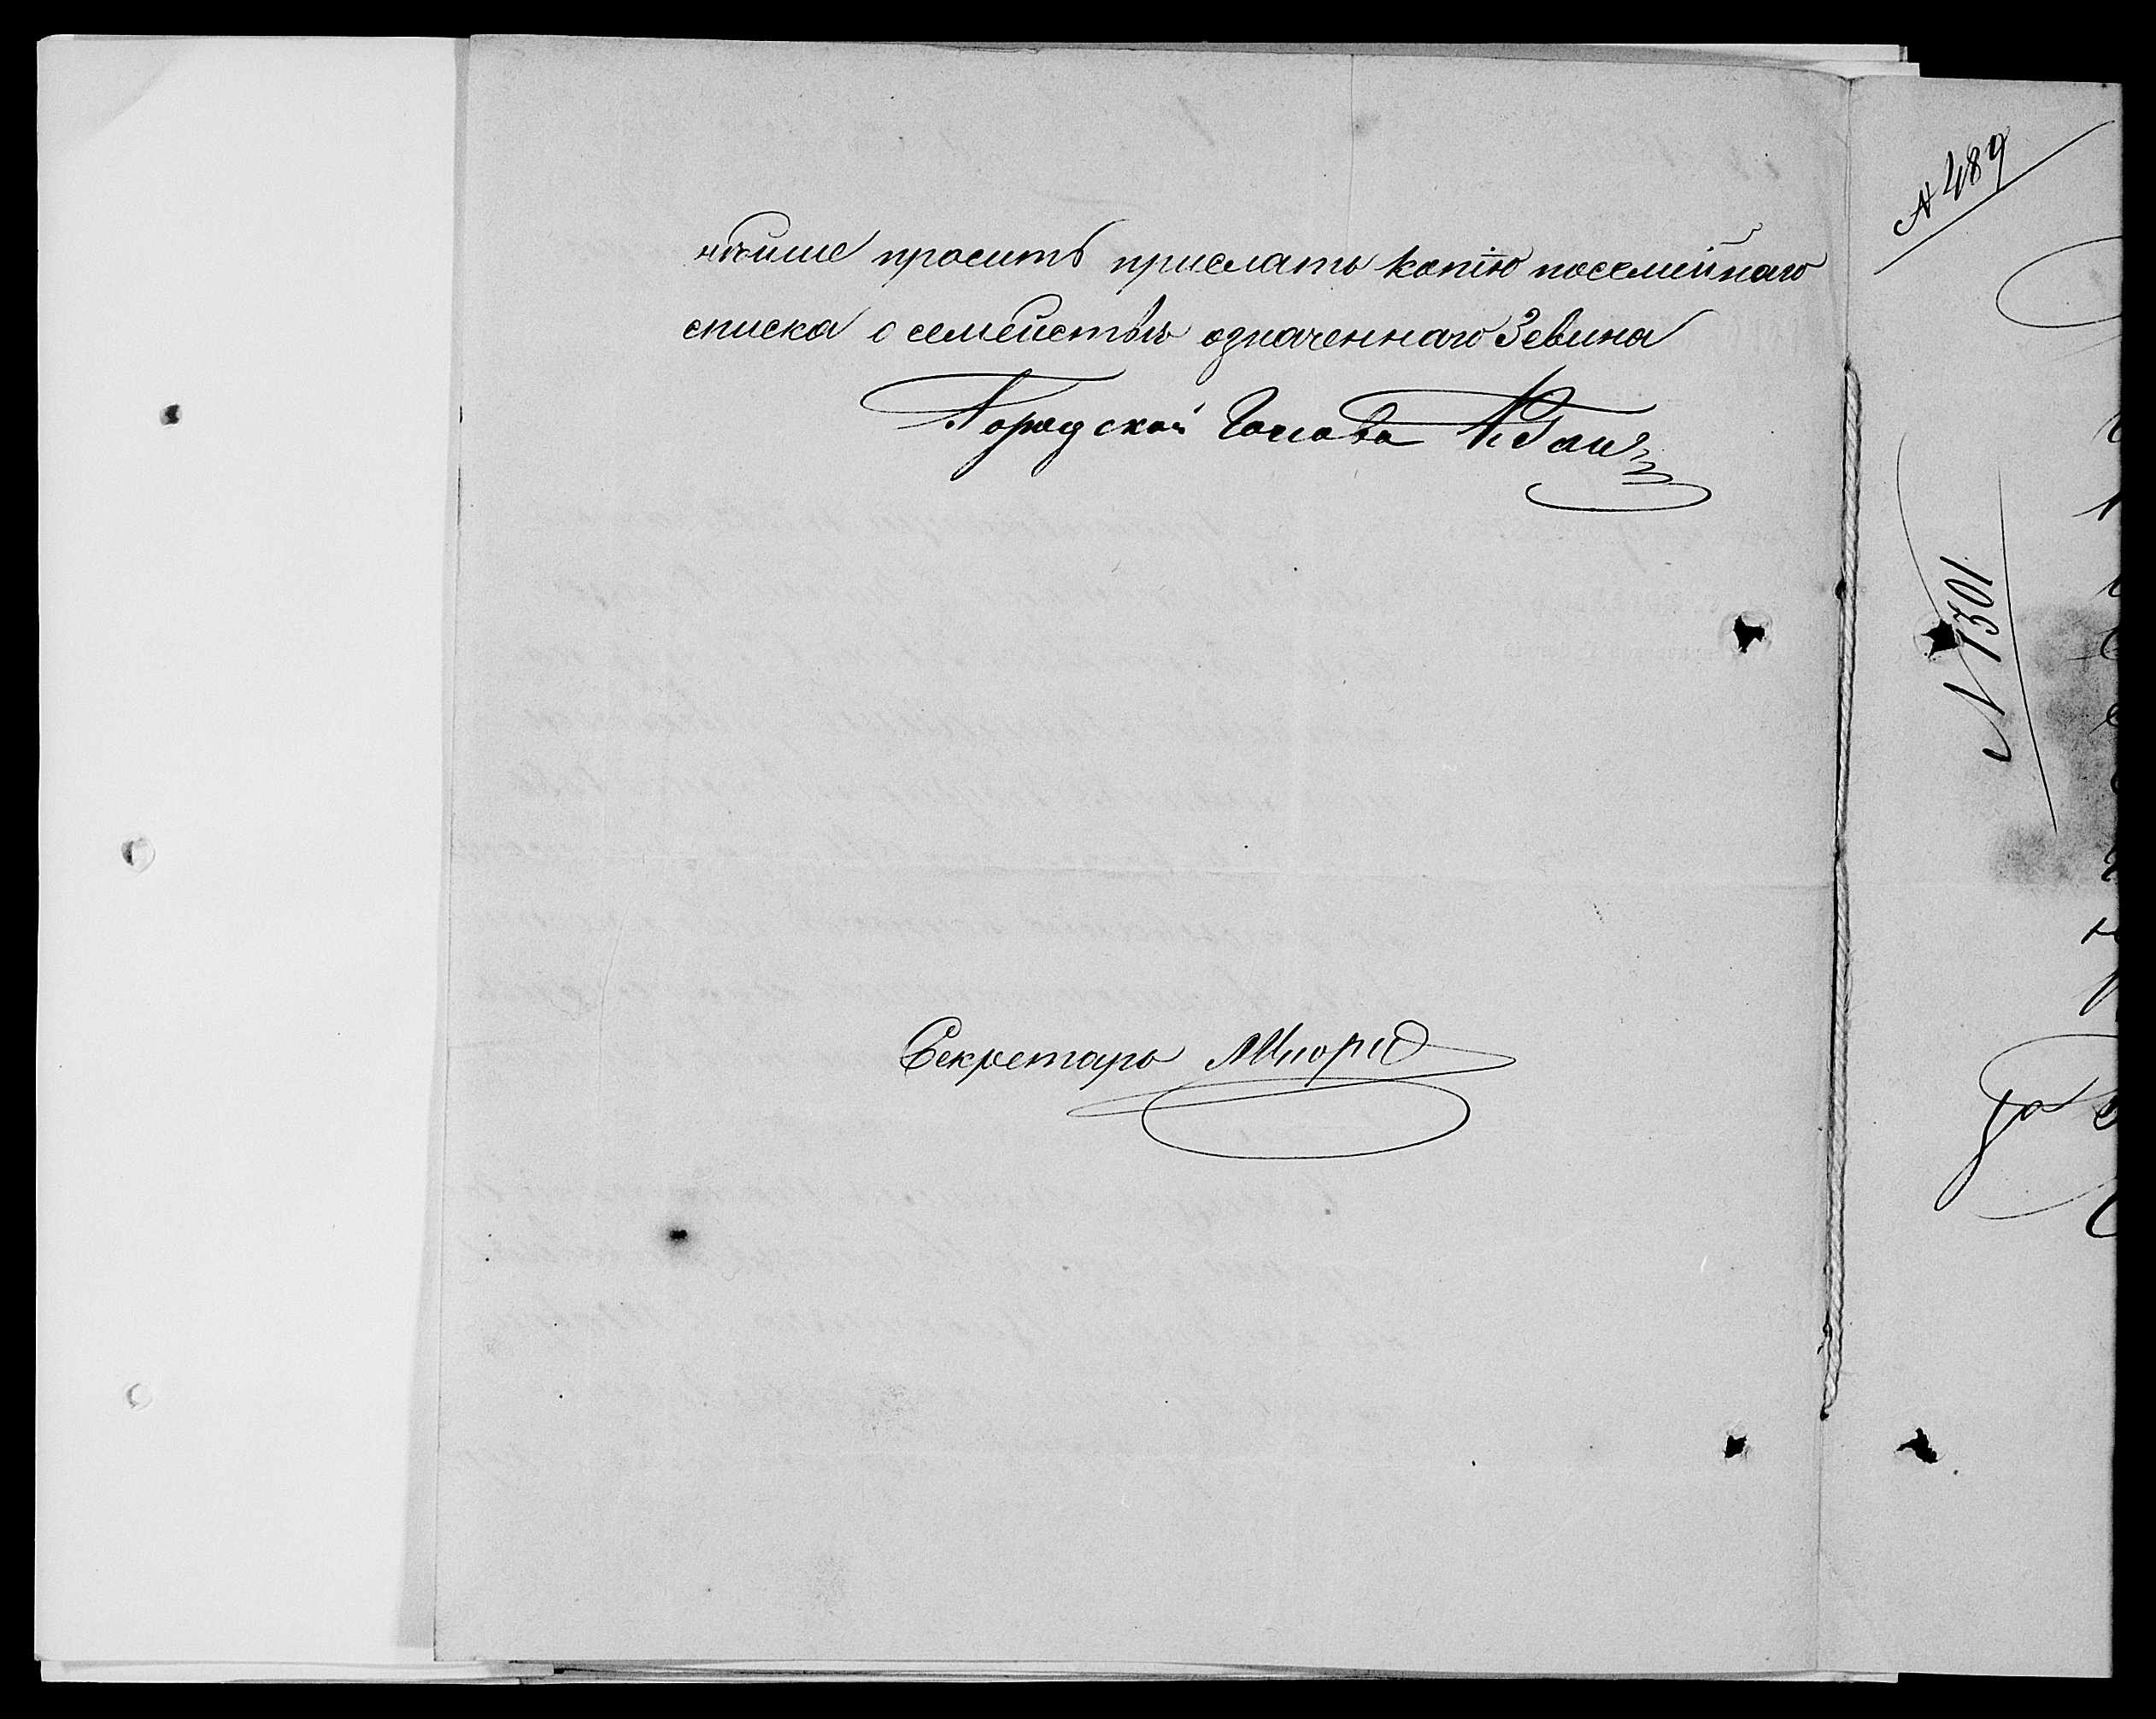 нѣйше проситъ прислать копію посемейнаго
списка о семействѣ означеннаго Зевина
Городской Голова
Секретарь
№ 489
№ 1301